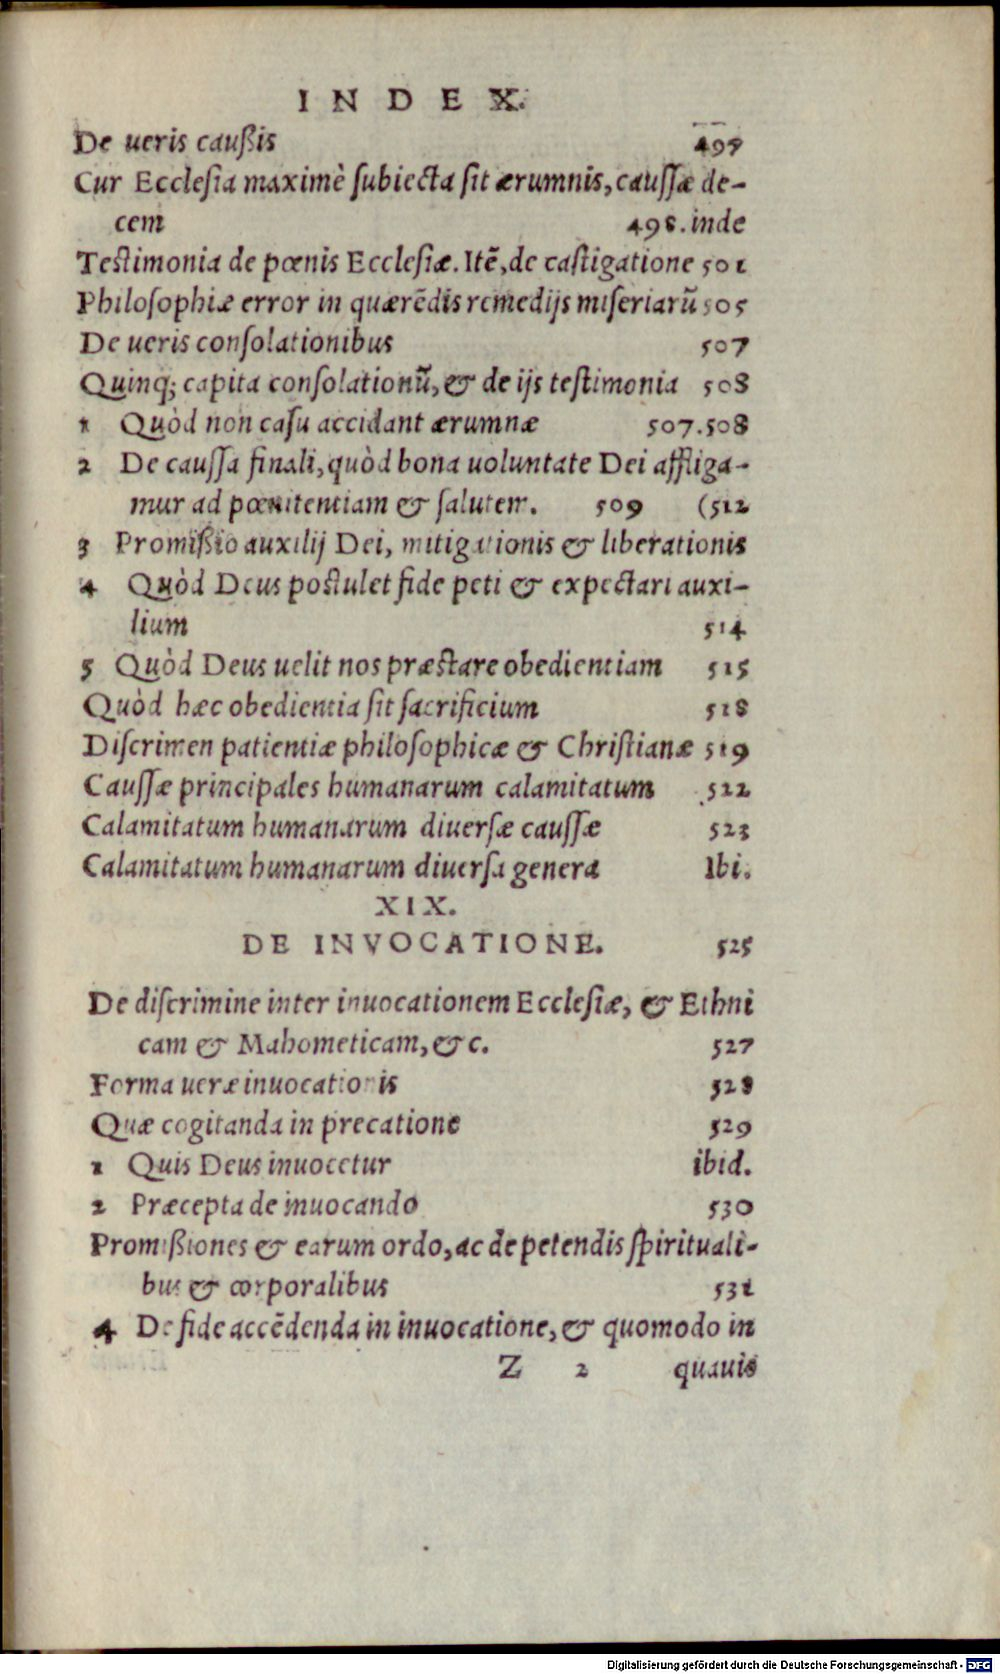 INDEX.
De ueris caußis 497
Cur Ecclesia maximè subiecta sit ærumnis, caussæ de-
cem 498. inde
Testimonia de pœnis Ecclesiæ. Itē, de castigatione 501
Philosophiæ error in quærēdis remedijs miseriarū 505
De ueris consolationibus 507
Quinq; capita consolationū, & de ijs testimonia 508
1 Quòd non casu accidant ærumnæ 507.508
2 De caussa finali, quòd bona uoluntate Dei affliga-
mur ad pœnitentiam & salutem. 509 (512
3 Promißio auxilij Dei, mitigationis & liberationis
4 Quòd Deus postulet fide peti & expectari auxi-
lium 514
5 Quòd Deus uelit nos præstare obedientiam 515
Quòd hæc obedientia sit sacrificium 518
Discrimen patientiæ philosophicæ & Christianæ 519
Caussæ principales humanarum calamitatum 522
Calamitatum humanarum diuersæ caussæ 523
Calamitatum humanarum diuersa genera Ibi.
XIX.
DE INVOCATIONE. 525
De discrimine inter inuocationem Ecclesiæ, & Ethni
cam & Mahometicam, & c. 527
Forma ueræ inuocationis 528
Quæ cogitanda in precatione 529
1 Quis Deus inuocetur ibid.
2 Præcepta de inuocando 530
Promißiones & earum ordo, ac de petendis spirituali-
bus & corporalibus 531
4 De fide accēdenda in inuocatione, & quomodo in
Z 2 quauis
Digitalisierung gefördert durch die Deutsche Forschungsgemeinschaft - DFG